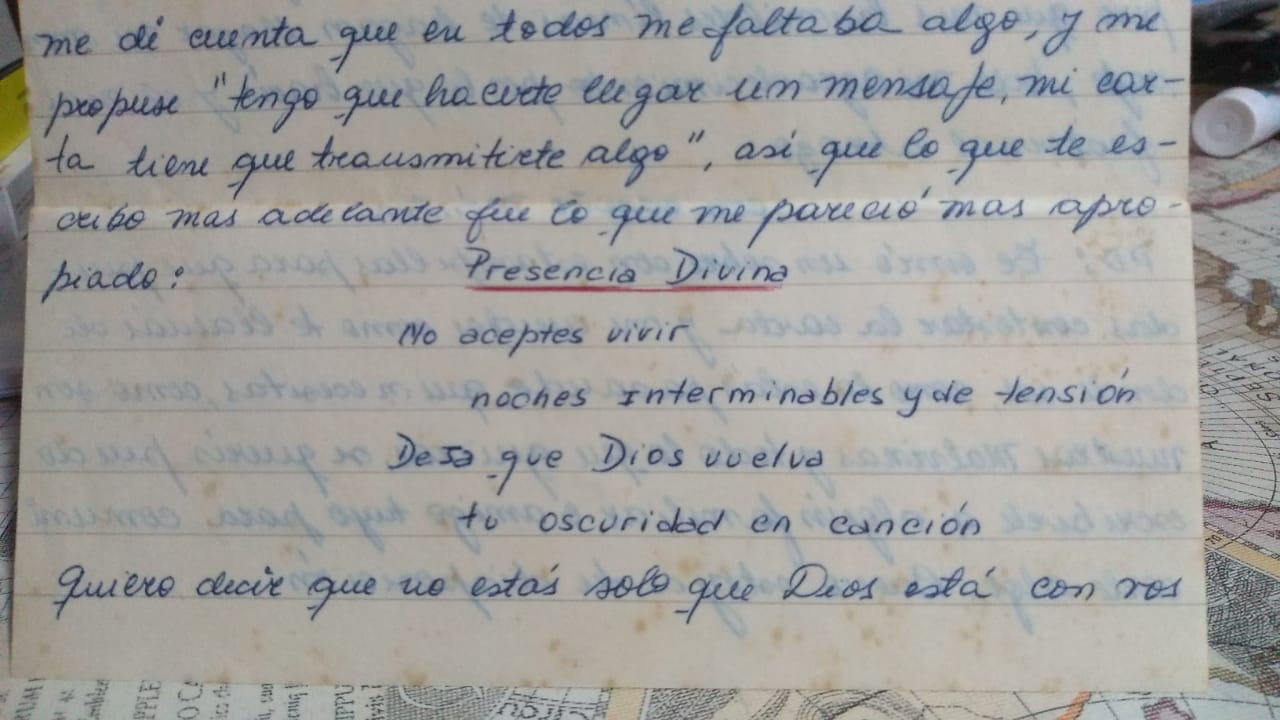 me dí cuenta que en todos me faltaba algo, y me
propuse "tengo que hacerte llegar un mensaje, mi car-
ta tiene que transmitirte algo", asi que lo que te es-
cribo mas adelante fue lo que me pareció mas apro-
piado:
Presencia Divina
No aceptes vivir
noches interminables y de tensión
Deja que Dios vuelva
tu oscuridad en canción
Quiero decir que no estás solo que Dios está con vos